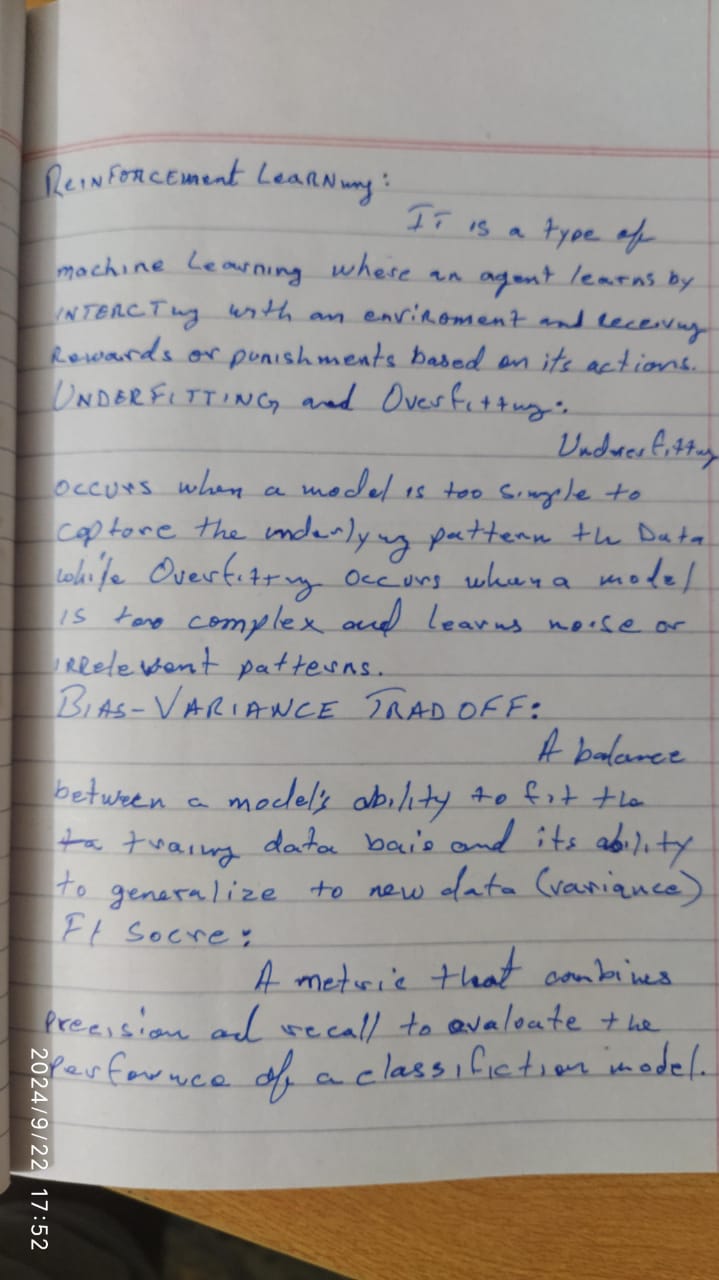 REINFORCEMENT LEARNing:
IT is a type of
machine Learning where an agent learns by
INTERCTing with an enviroment and receiving
Rewards or punishments based on its actions.
UNDERFITTING and Overfitting:
Underfitting
occurs when a model is too simple to
captore the underlying pattern the Data
while Overfitting occurs when a model
is too complex and learns noise or
irrelevent patterns.
BIAS-VARIANCE TRADOFF:
A balance
between a model's ability to fit the
ta traing data bais and its ability
to generalize to new data (variance)
F1 Socre:
A metric that combines
Precision ad recall to evaloate the
Perfornce of a classifiction model.
2024/9/22 17:52